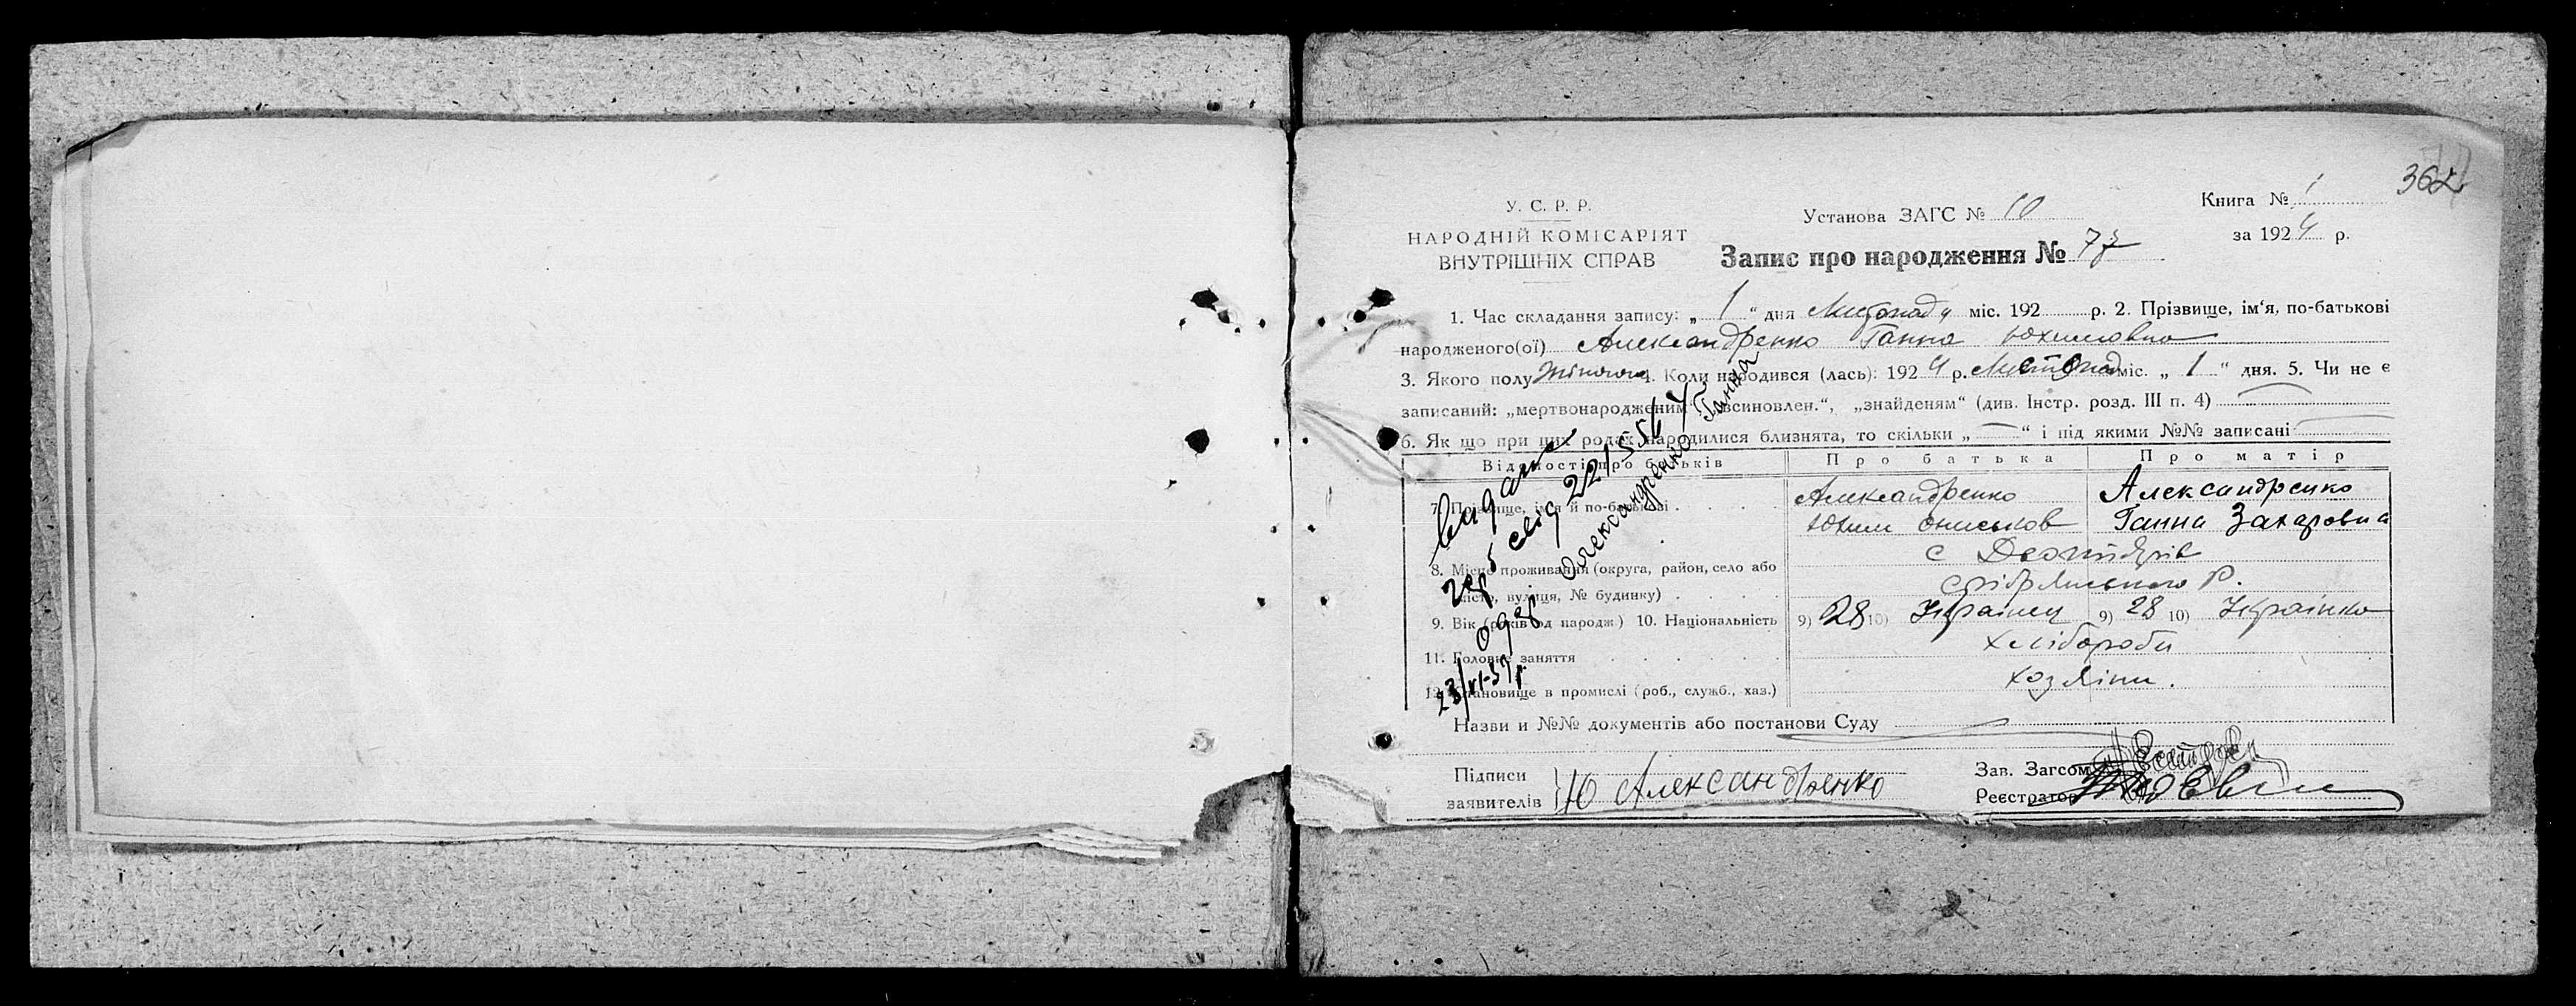 362
У. С. Р. Р.
НАРОДНІЙ КОМІСАРІЯТ
ВНУТРІШНІХ СПРАВ
Установа ЗАГС № 10
Книга № 1
за 1924 р.
Запис про народження № 73
1. Час складання запису: „ 1 “ дня Листопада міс. 192 р. 2. Прізвище, ім‘я, по-батькові
народженого(ої) Александренко Ганна Юхимовна
3. Якого полу Жіночого 4. Коли народився (лась): 1924 р. Листопад міс. „ 1 “ дня. 5. Чи не є
записаний: „мертвонародженим“ „всиновлен.“, „знайденям“ (див. Інстр. розд. III п. 4)
6. Як що при цих родах народилися близнята, то скільки „ — “ і під якими №№ записані —
Відомості про батьків Про батька Про матір
7. Прізвище, ім‘я й по-батькові Александренко Александренко
Юхим Ониськов Ганна Захаровна
8. Місце проживання (округа, район, село або с Дегтярів
місто, вулиця, № будинку) Срібрянського Р.
9. Вік (років од народж) 10. Національність 9) 28 10) Українец 9) 28 10) Українка
11. Головне заняття хлібороби
12. Становище в промислі (роб., служб., хаз.) хозяіни.
Назви и №№ документів або постанови Суду
Підписи
заявителів Ю Александренко
Зав. Загсом
Реєстратор
видано
свід 221554
Олександренко Ганна
23/XI-57р